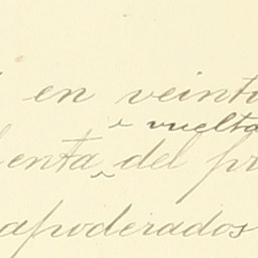 en veinti
é vuelta
enta del pr
apoderados